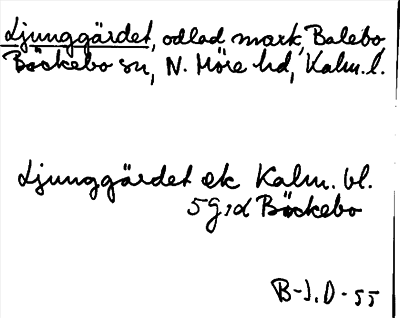 Ljunggärdet, odlad mark, Balebo
Bäckebo sn, N. Möre hd, Kalm. l.
Ljunggärdet ek Kalm. bl.
5G, d Bäckebo
B-J. D - 55